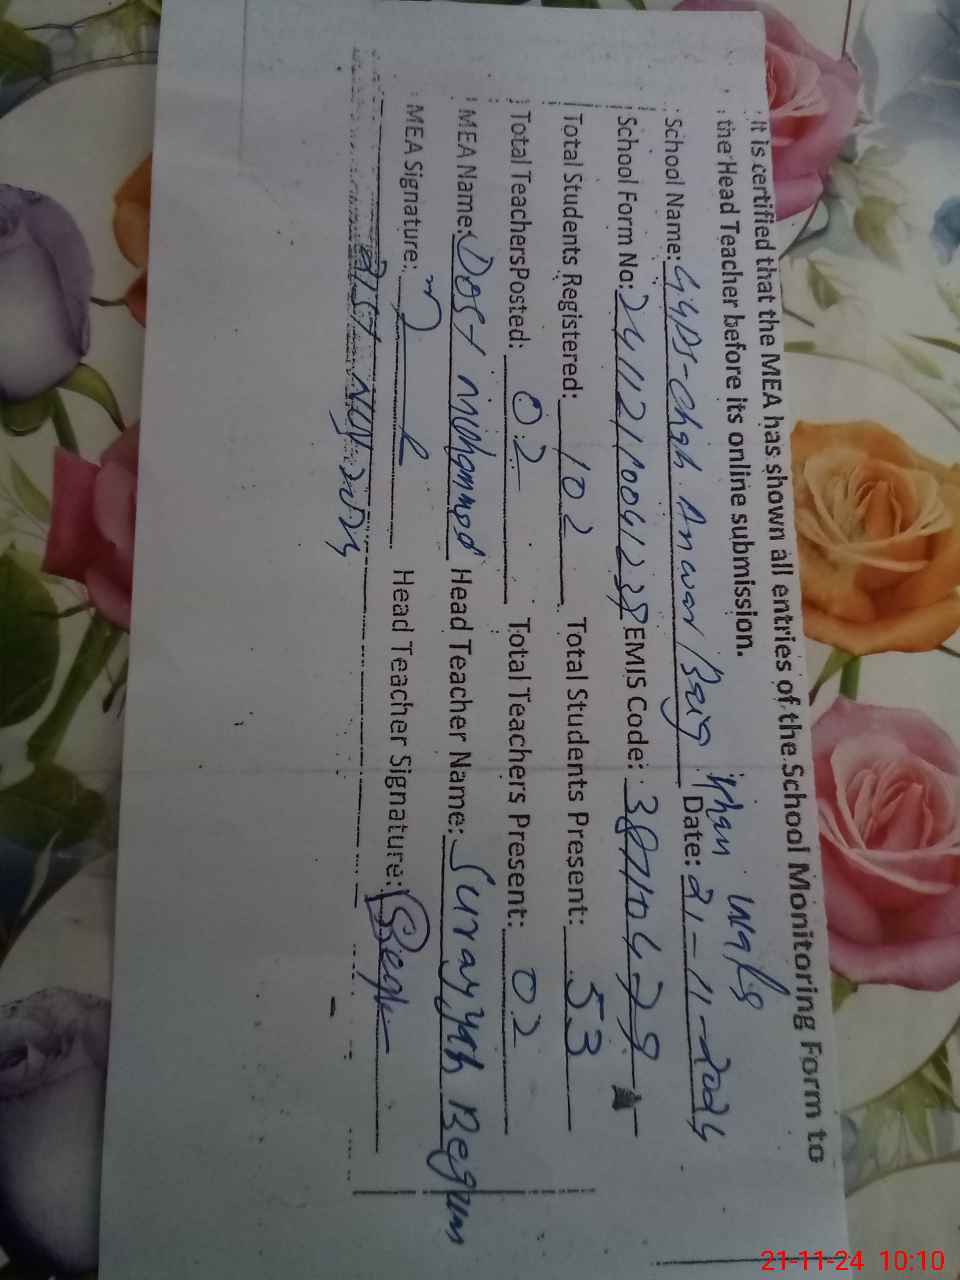 It is certified that the MEA has shown all entries of the School Monitoring Form to
the Head Teacher before its online submission.
School Name: GGPS-Chah Anwar Baig Khan Wala Date: 21-11-2024
School Form No: EMIS Code:
Total Students Registered: 102 Total Students Present: 53
Total TeachersPosted: 02 Total Teachers Present: 02
MEA Name: Dost Muhammad Head Teacher Name: Surayyah Begum
MEA Signature: Head Teacher Signature:
21st Nov 2024
21-11-24 10:10